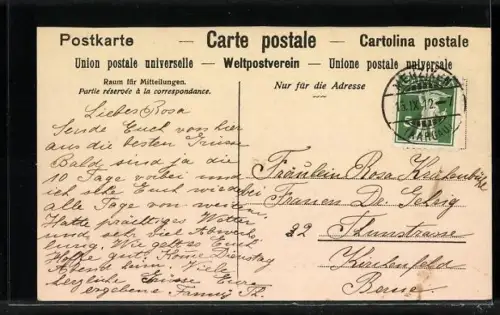 Postkarte — Carte postale — Cartolina postale
Union postale universelle — Weltpostverein — Unione postale universale
Raum für Mitteilungen.
Partie réservée à la correspondance.
Nur für die Adresse
MENZIKEN
15.IX.12
(AARGAU)
5
Liebes Rosa
Sende Euch von hier
aus die besten Grüsse
Bald sind ja die
10 Tage vorbei und
ich sehe Euch wieder
alle Tage von weitem
Hatte prächtiges Wetter
und sehr viel Abwechs
lung. Wie geht es Euch
Hoffe gut. Komme Dienstag
Abend heim. Viele
herzliche Grüsse Eure
ergebene Fanny Th.
Fräulein Rosa
bei Frauen Dr.
32 Thunstrasse
Kirchenfeld
Berne